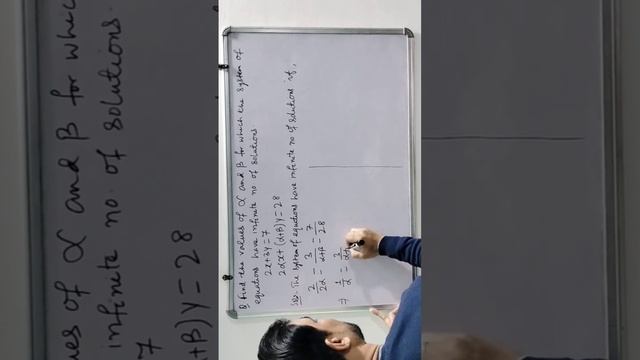 Q. Find the values of α and β for which the system of
equations have infinite no of solutions.
2x+3y=7
2αx+(α+β)y=28
Sol:- The system of equations have infinite no of solutions if,
2/2α = 3/α+β = 7/28
⇒ 1/α = 3/α+
ues of α and β for whic
infinite no. of solutions.
7
+β)y=28